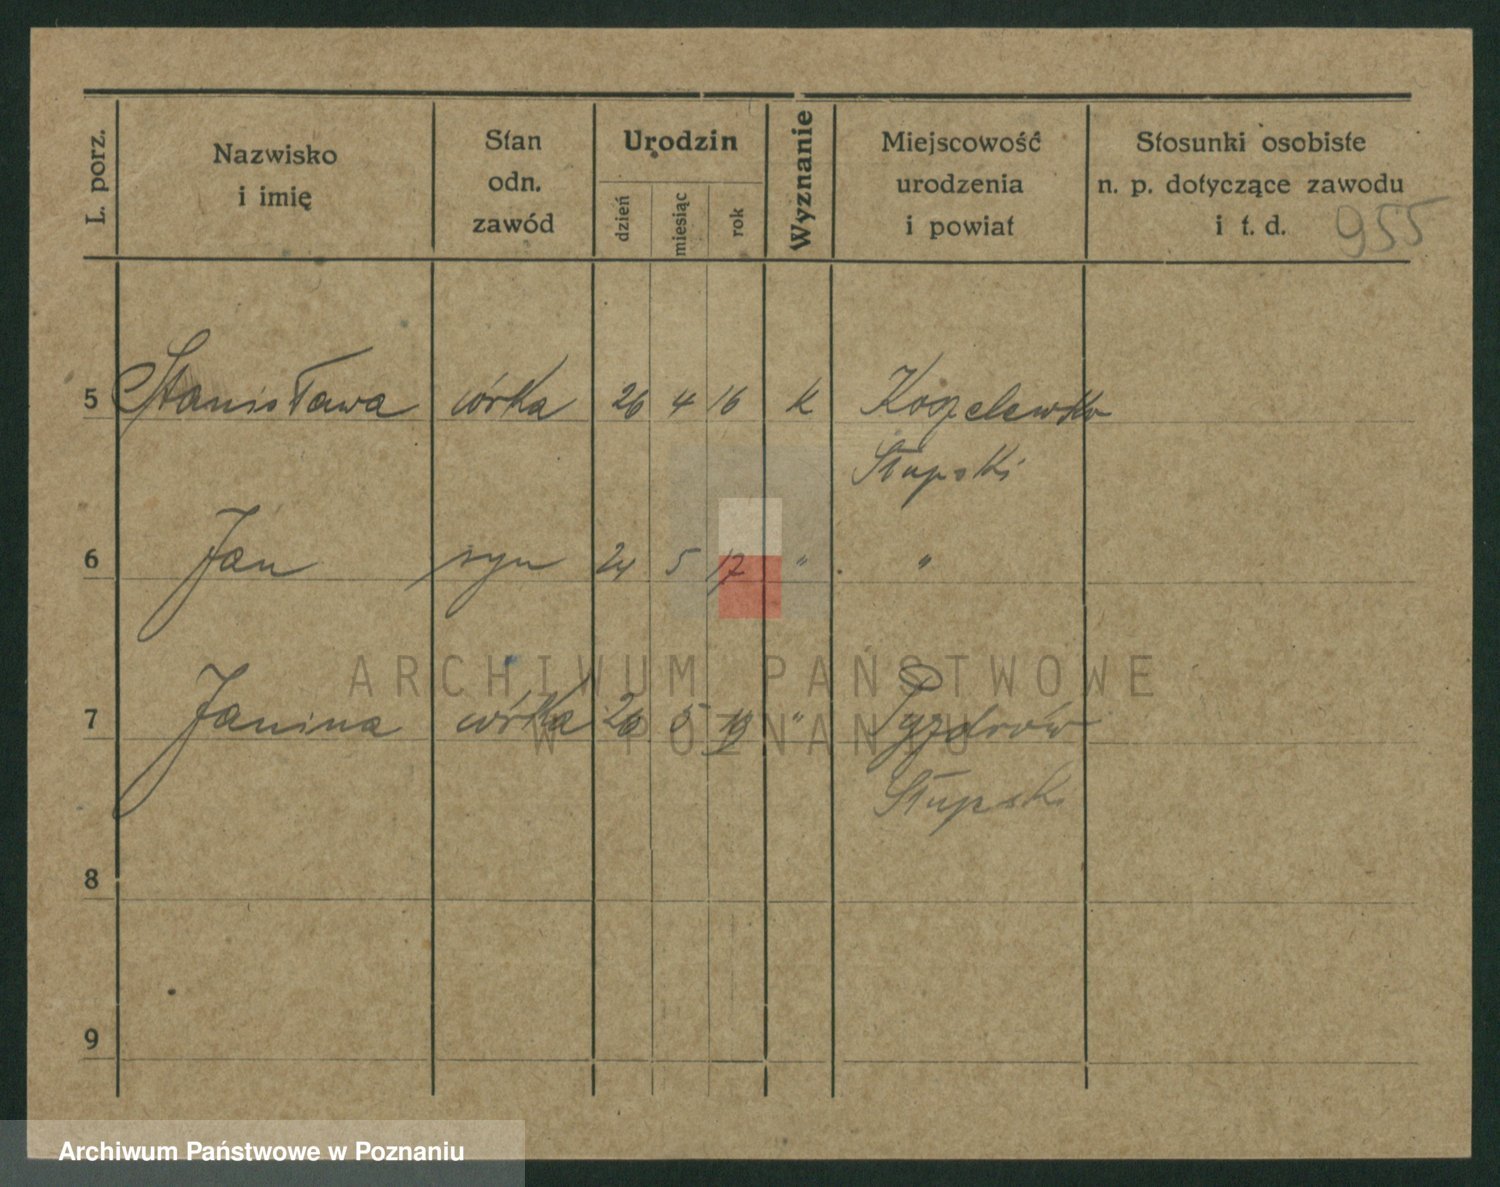 L. porz.
Nazwisko
i imię
Stan
odn.
zawód
Urodzin
dzień
miesiąc
rok
Wyznanie
Miejscowość
urodzenia
i powiat
Stosunki osobiste
n. p. dotyczące zawodu
i t. d.
955
5 Stanisława córka 26 4 16 k
Słupski
6 Jan syn 24 5 17 " "
ARCHIWUM PAŃSTWOWE
W POZNANIU
7 Janina córka 26 5 19 " Pyzdrów
Słupski
8
9
Archiwum Państwowe w Poznaniu